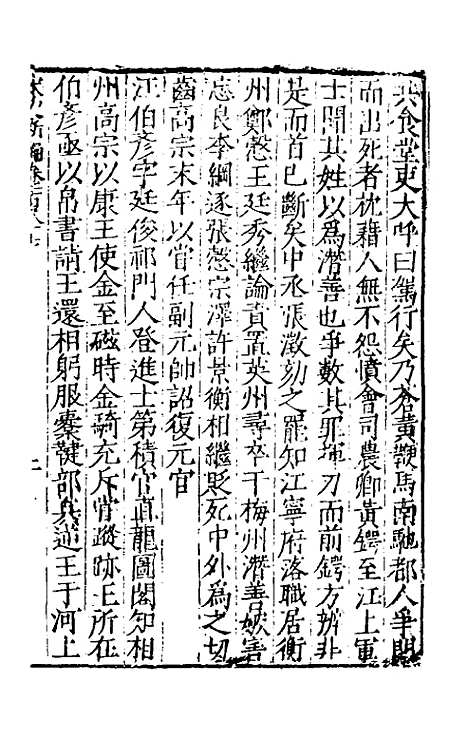 共食堂吏大呼曰駕行矣乃蒼黃鞭馬南馳都人爭門
而出死者枕藉人無不怨憤會司農卿黃鍔至江上軍
士聞其姓以爲潛善也爭數其罪揮刃而前鍔方辨非
是而首已斷矣中丞張澂劾之罷知江寧府落職居衡
州鄭慤王廷秀繼論責置英州尋卒于梅州潛善嫉害
忠良李綱逐張慤宗澤許景衡相繼貶死中外爲之切
齒高宗末年以官任副元帥詔復元官
汪伯彦字廷俊祁門人登進士第積官直龍圖閣知相
州高宗以康王使金至磁時金騎充斥嘗蹤跡王所在
伯彦亟以帛書請王還相躬服櫜鞬部兵逆王于河上
宋史新編卷一百八十七